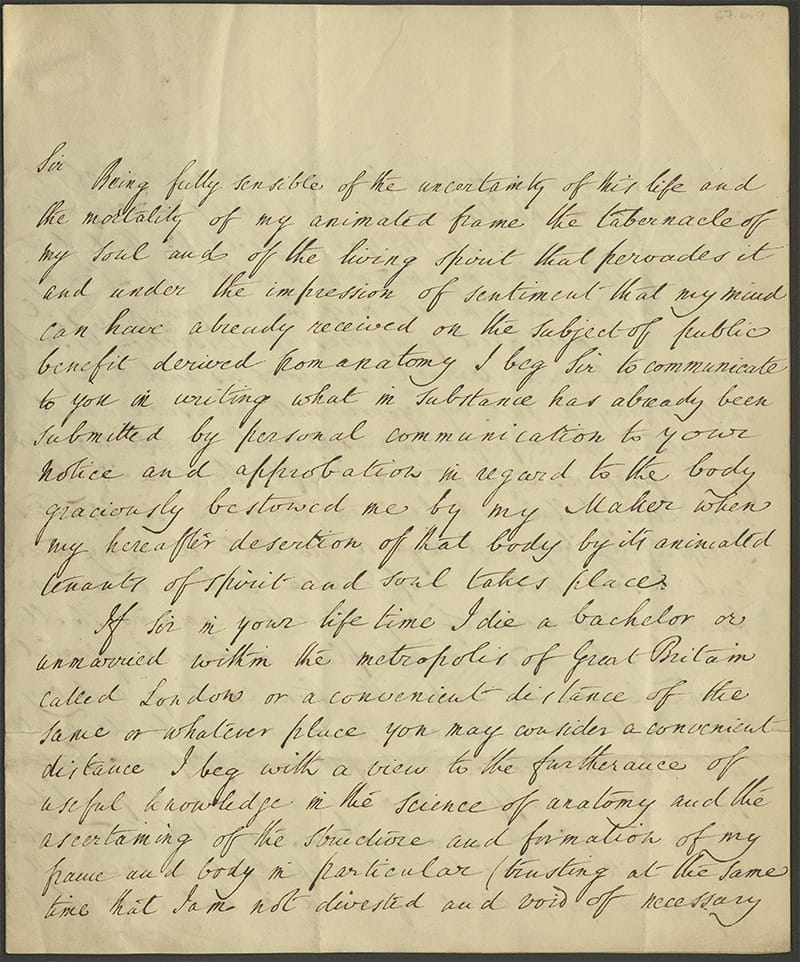 Sir
Being fully sensible of the uncertainty of this life and
the mortality of my animated frame the tabernacle of
my soul and of the living spirit that pervades it
and under the impression of sentiment that my mind
can have already received on the subject of public
benefit derived from anatomy I beg Sir to communicate
to you in writing what in substance has already been
submitted by personal communication to your
notice and approbation in regard to the body
graciously bestowed me by my Maker when
my hereafter desertion of that body by its animated
tenants of spirit and soul takes place.
If Sir in your life time I die a bachelor or
unmarried within the metropolis of Great Britain
called London or a convenient distance of the
same or whatever place you may consider a convenient
distance I beg with a view to the furtherance of
useful knowledge in the science of anatomy and the
ascertaining of the structure and formation of my
frame and body in particular (trusting at the same
time that I am not divested and void of necessary